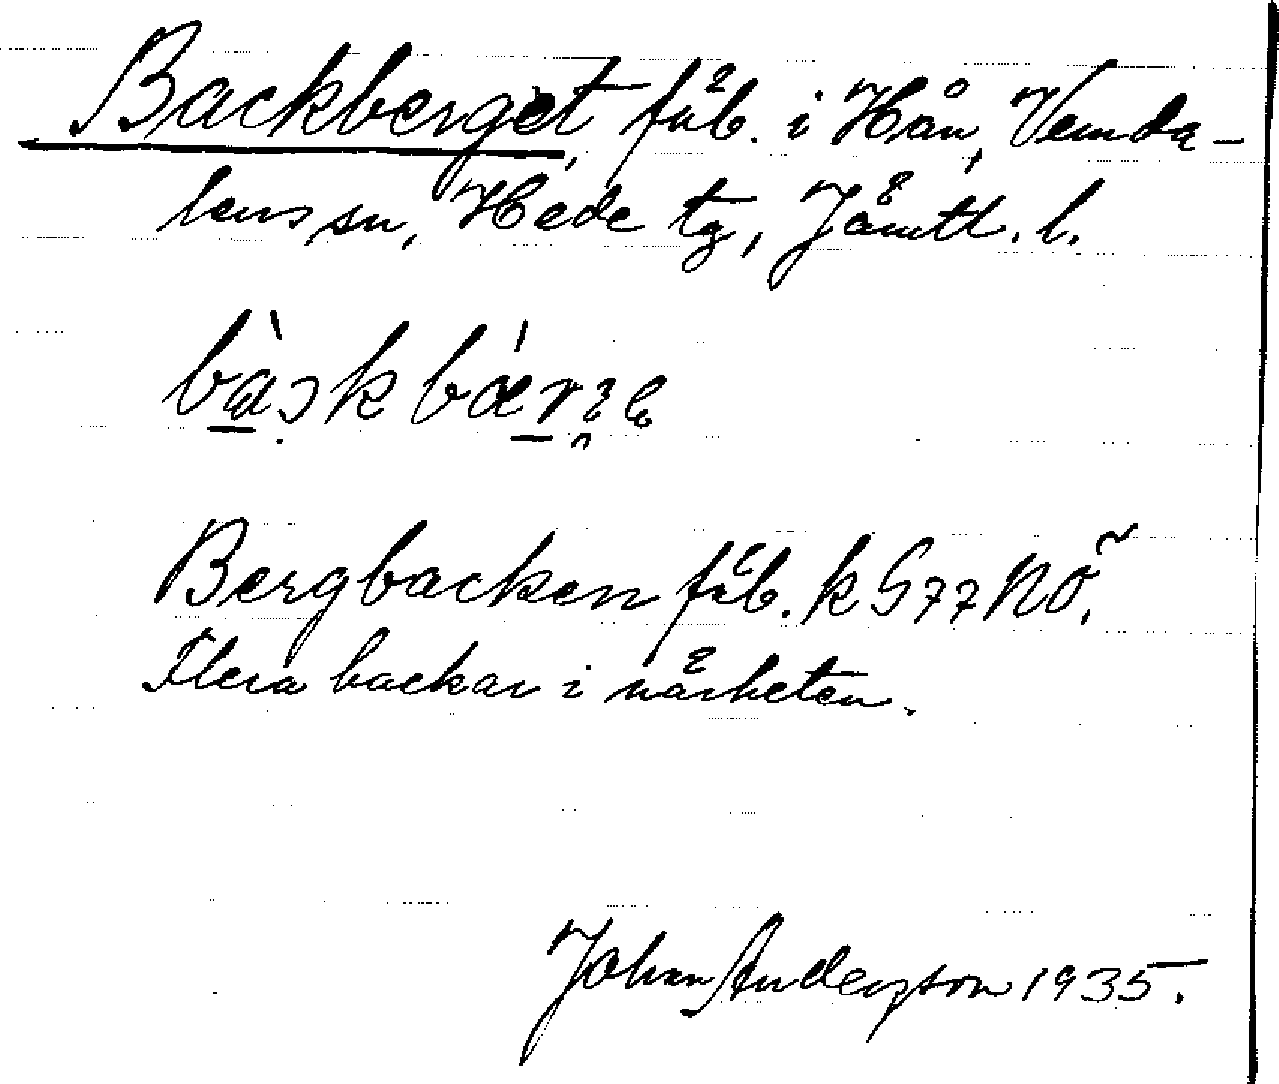 Backberget fäb. i Hån, Vemda-
lens sn, Hede tg, Jämtl. l.
Bergbacken fäb. k G77 NÖ.
Flera backar i närheten.
Johan Anderson 1935.